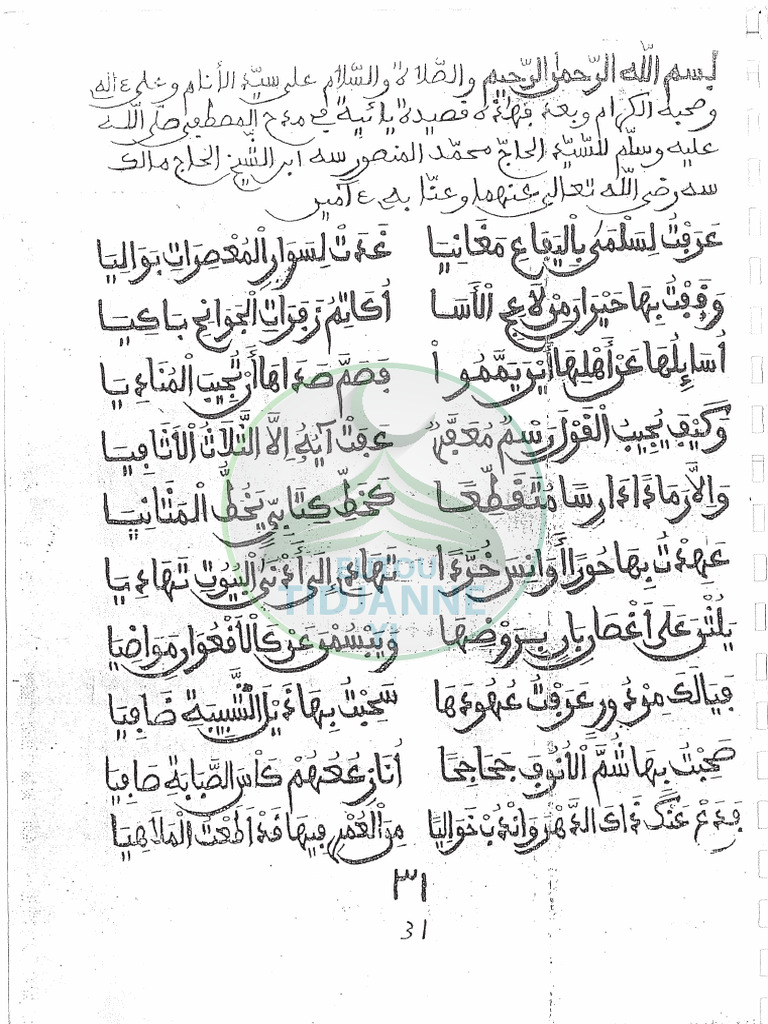 بسم الله الرّحمن الرّحيم والصّلاة والسّلام على سيّد الأنام وعلى ءاله
وصحبه الكرام وبعد فهاذه قصيدة يائية في مدح المصطفى صلّى الله
عليه وسلّم للسّيّد الحاجّ محمّد المنصور سه ابن الشّيخ الحاج مالك
سه رضي الله تعالى عنهما وعنّا به ءامين
عَرَفْتُ لِسَلْمَى بِالْيَفَاعِ مَغَانِيَا غَدَتْ لِسَوَارِ الْمُعْصِرَاتِ بَوَالِيَا
وَقَفْتُ بِهَا حَيْرَانَ مِنْ لَاعِجِ الْأَسَا أُكَاتِمُ زَفِرَاتِ الْجَوَانِحِ بَاكِيَا
أُسَايِلُهَا عَنْ أَهْلِهَا أَيْنَ يَمَّمُوا فَصَمَّ صَدَاهَا أَنْ تُجِيبَ الْمُنَادِيَا
وَكَيْفَ يُجِيبُ الْقَوْلَ رَسْمٌ مُعَفَّرٌ عَفَتْ آيُهُ إِلَّا الثَّلَاثَ الْأَثَافِيَا
وَإِلَّا رَمَادًا دَارِسًا مُتَقَطِّعًا كَخَطِّ كِتَابِيٍّ يَخُطُّ الْمَثَانِيَا
عَهِدْتُ بِهَا حُورًا أَوَانِسَ خُرَّدًا تَهَادَى إِلَى أَدْنَى الْبُيُوتِ تَهَادِيَا
يَلُثْنَ عَلَى أَغْصَانِ بَانٍ بِرَوْضِهَا وَيَبْسُمْنَ عَنْ كَالْأُقْحُوَانِ مَوَاضِيَا
فَيَالَكَ مِنْ دُورٍ عَرَفْتُ عُهُودَهَا سَحِبْتُ بِهَا ذَيْلَ الشَّبِيبَةِ ضَافِيَا
صَحِبْتُ بِهَا شُمَّ الْأُنُوفِ جَحَاجِحًا أُنَازِعُهُمْ كَأْسَ الصَّبَابَةِ صَافِيَا
فَدَعْ عَنْكَ ذَاكَ الدَّهْرَ وَانْدُبْ خَوَالِيَا مِنَ الْعُمْرِ فِيهَا قَدْ أَطَعْتَ الْمَلَاهِيَا
٣١
31
TIDJANNE
YI